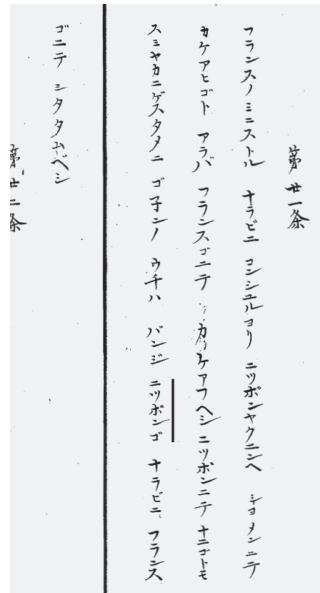 第廿一条
フランスノミニストル ナラビニ コンシエルヨリ ニツポンヤクニンヘ シヨメンニテ
カケアヒゴト アラバ フランスゴニテ カケアフヘシ ニツポンニテ ナニゴトモ
スミヤカニゲスタメニ ゴ子ンノ ウチハ バンジ ニツポンゴ ナラビニ フランス
ゴニテ シタタムベシ
第廿二条